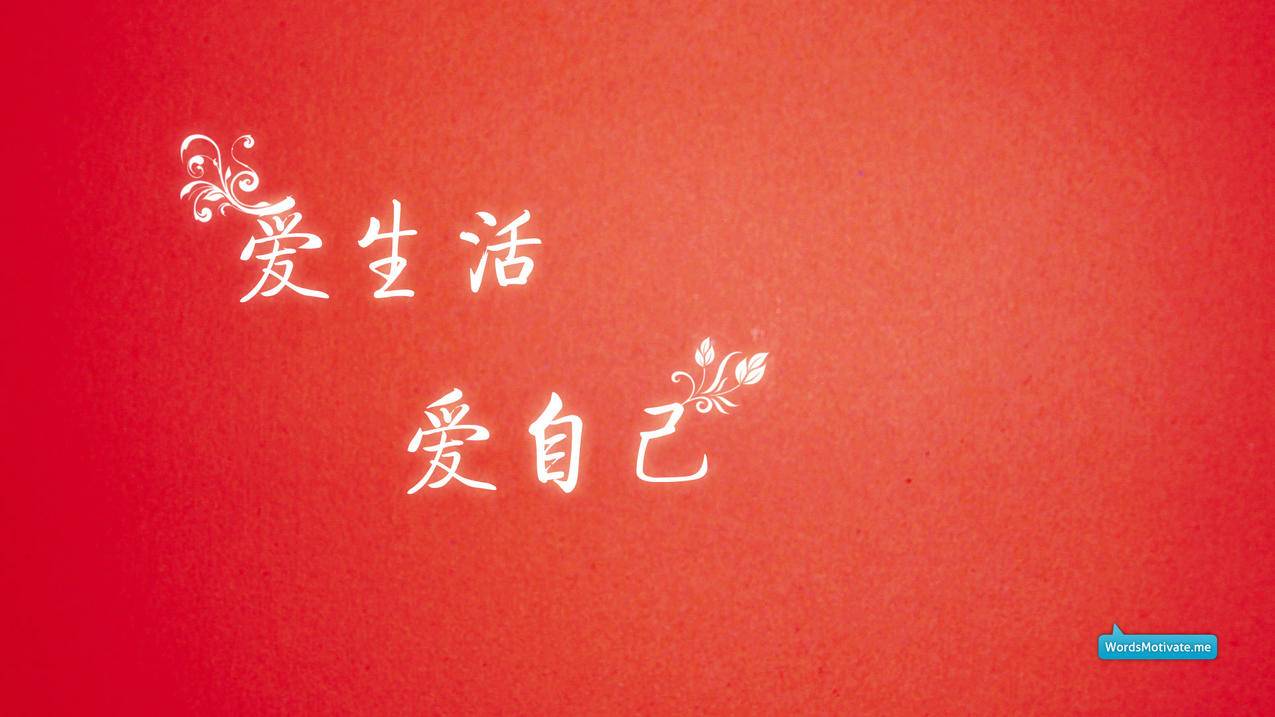 爱生活
爱自己
WordsMotivate.me